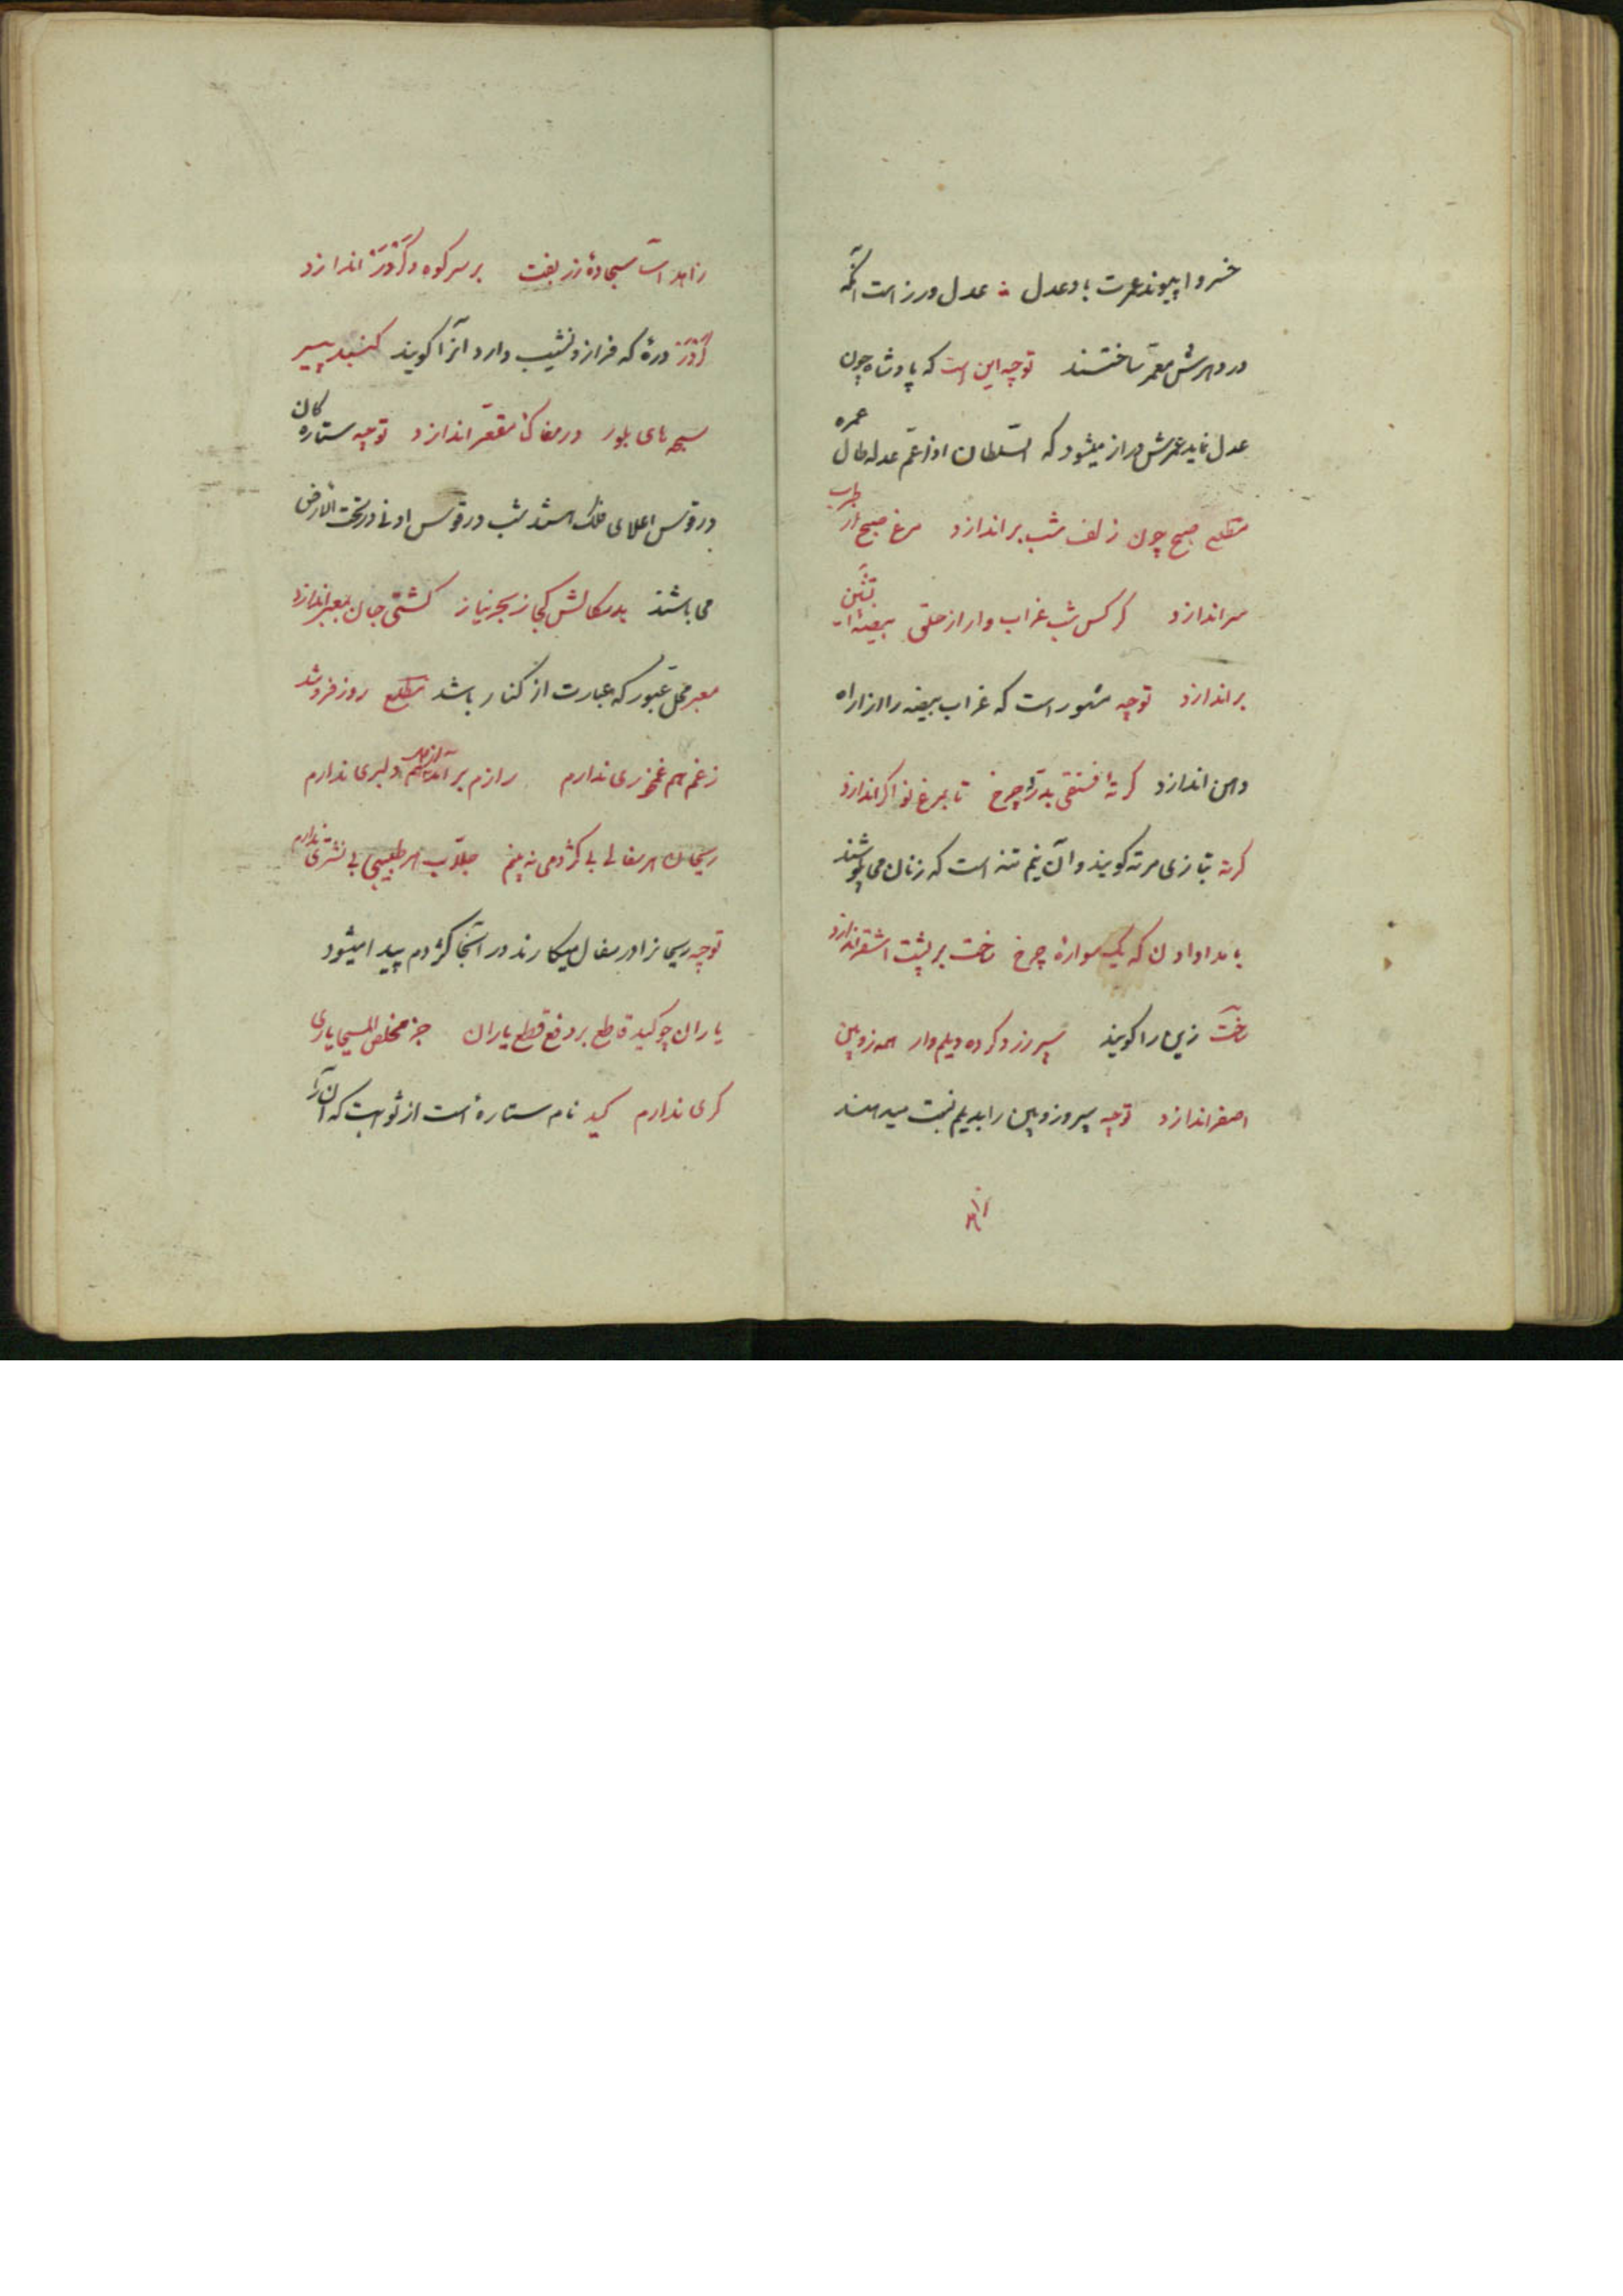 خسروا پیوند عمرت باد عدل عدل ورز است آنکه
در دهرش معمّر ساختند توجیه این است که پادشاه چون
عدل نماید عمرش دراز میشود که السّلطان اذا عمّ عدله طال عمره
مطلع صبح چون زلف شب براندازد مرغ صبح از طرب
سر اندازد کرکس شب غراب وار از حلق بیضهٔ آتشین
براندازد توجیه مشهور است که غراب بیضه را از راه
دهن اندازد کرتهٔ فستقی بدرد چرخ تا بمرغ نواگر اندازد
کرته بتازی مرته کویند و آن نیم تنه است که زنان می پوشند
بامدادان که یک سوارهٔ چرخ ساخت بر پشت اشقر اندازد
ساخت زین را کویند سپر زرد کرده دیلم وار همه زوبین
اصفر اندازد توجیه سپر و زوبین را بدیلم نسبت میدهند
زاهد
زاهد آسا سجادهٔ زربفت بر سر کوه و کردر اندازد
کردر درهٔ که فراز و نشیب دارد آنرا کویند کنبد پیر
سبحه های بلور در مغاک مقعّر اندازد توجیه ستاره کان
در قوس اعلای فلک باشند شب در قوس ادنی در تحت الارض
می باشند بدسکالش کجا ز بحر نیاز کشتی جان بمعبر اندازد
معبر محل عبور که عبارت از کنار باشد مطلع روز فرو شد
ز غم هم غمخوری ندارم رازم برآمد از دل هم دلبری ندارم
ریحان هر سفالی بی کژدمی نه بینم جلّاب هر طبیبی بی نشتری ندارم
توجیه ریحانرا در سفال میکارند در آنجا کژدم پیدا میشود
یاران چو کید قاطع بر دفع قطع یاران جز مخلص المسیحا یاری
کری ندارم کید نام ستارهٔ است از ثوابت که آن را